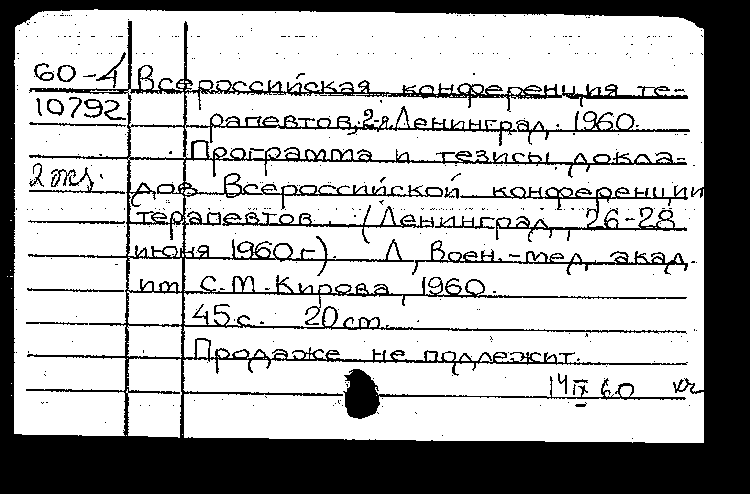 60-4 Всероссийская конференция те-
10792 рапевтов, 2-я. Ленинград. 1960.
Программа и тезисы докла-
2 экз. дов Всероссийской конференции
терапевтов. (Ленинград, 26-28
июня 1960г.). Л, Воен.-мед. акад.
им С.М. Кирова, 1960.
45 с. 20 см.
Продаже не подлежит.
14 IX 60